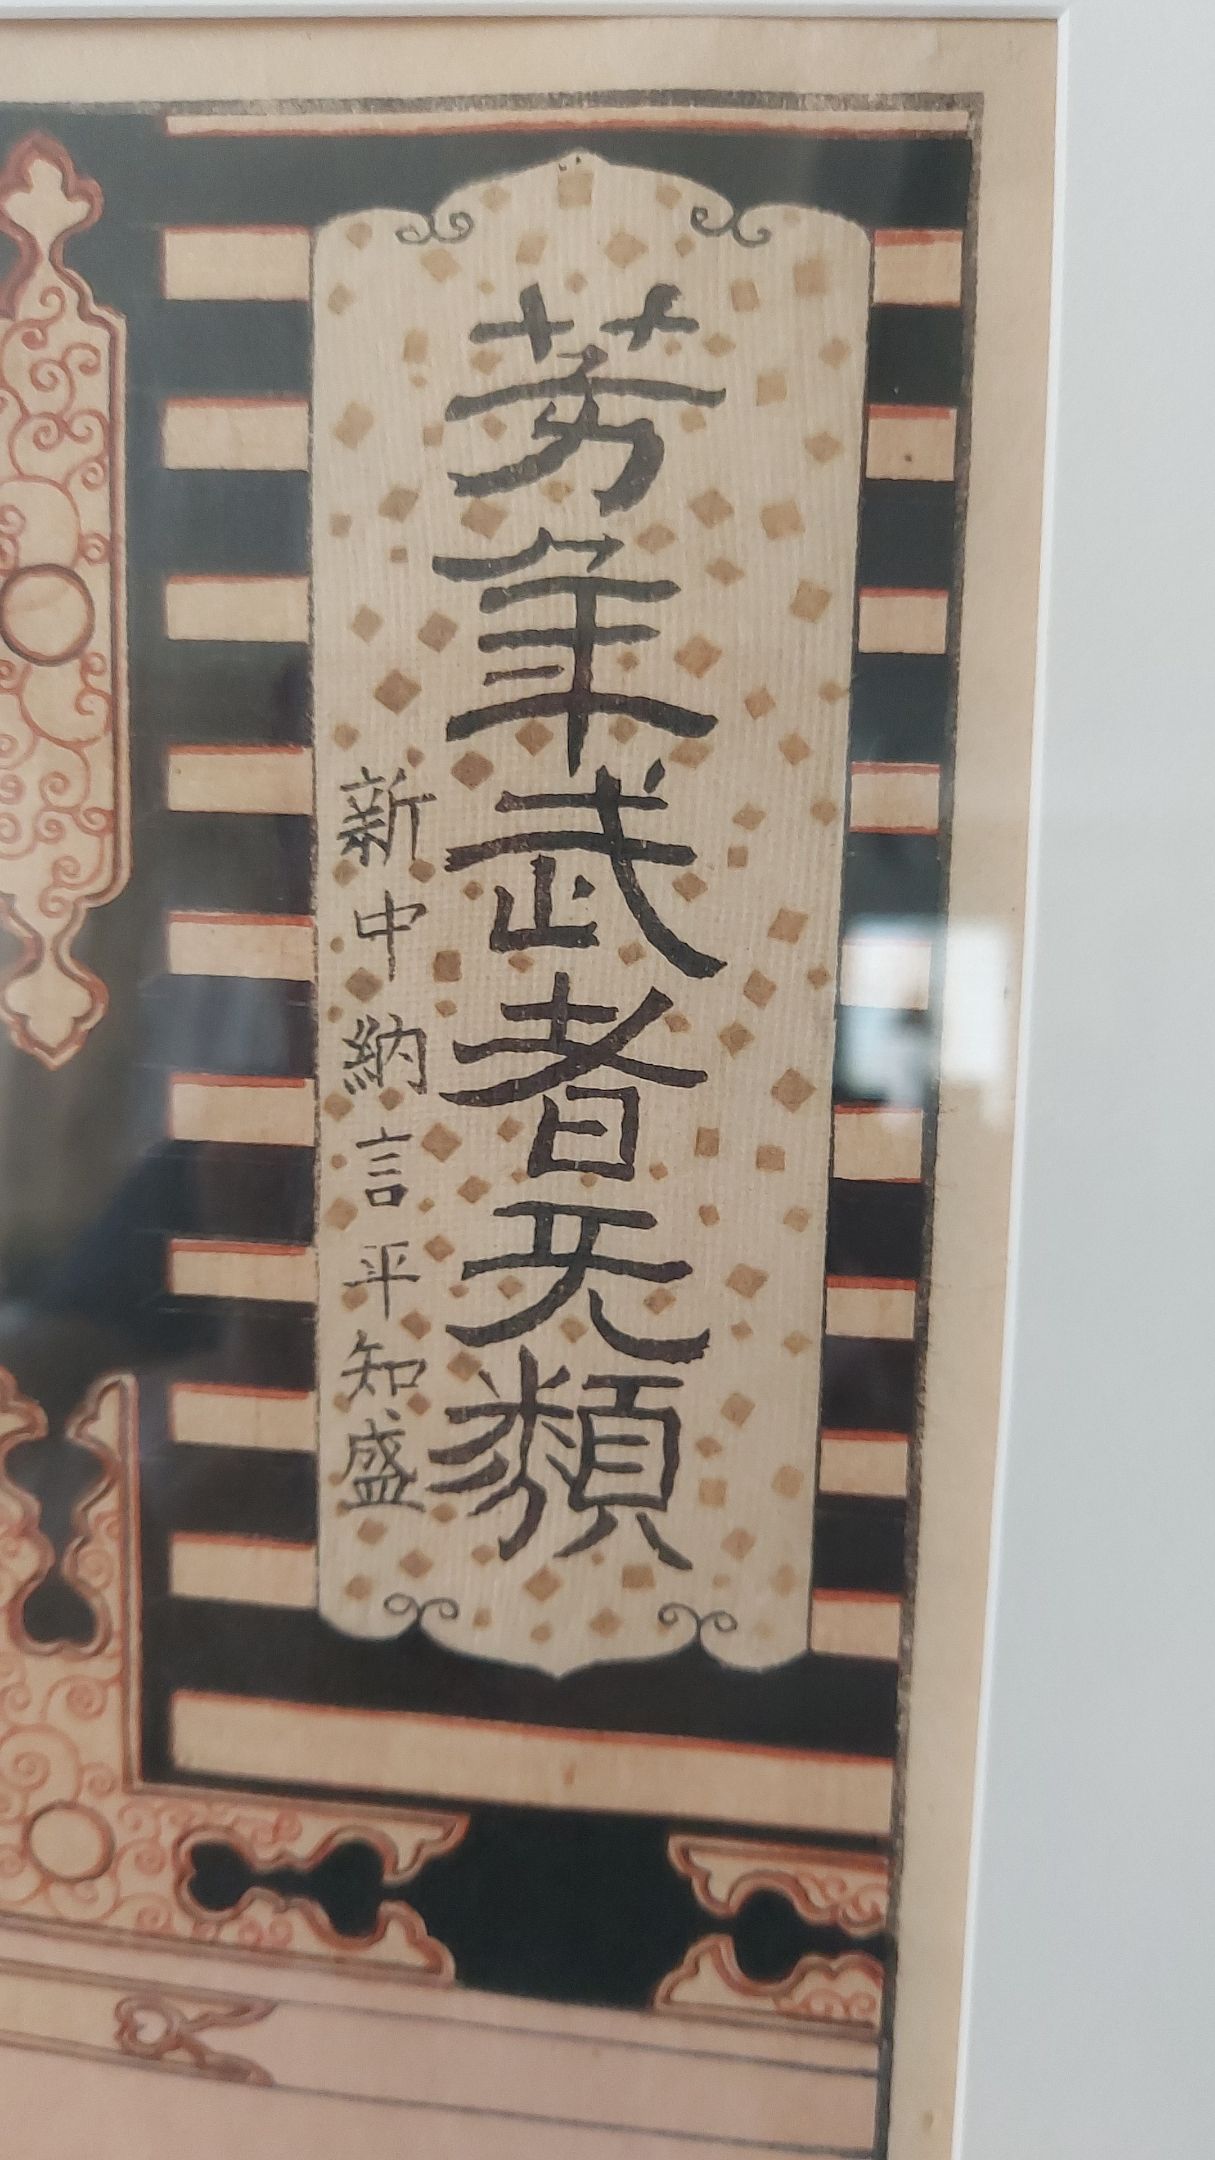 芳年武者旡類
新中納言平知盛